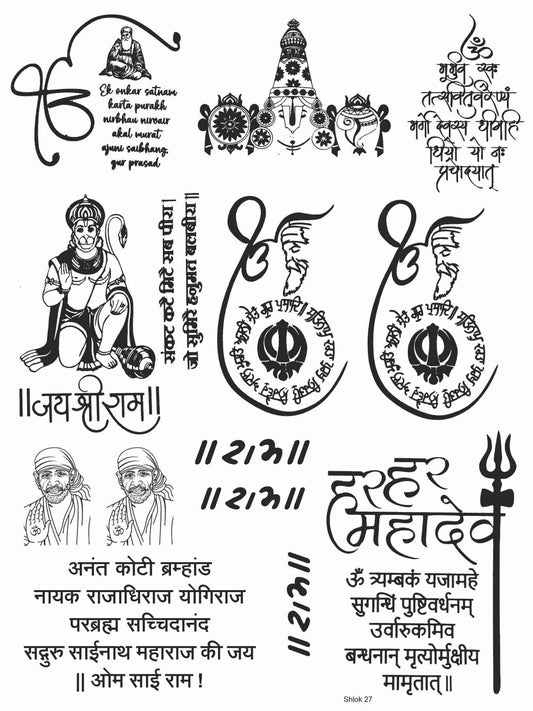 ੴ
Ek onkar satnam
karta purakh
nirbhau nirvair
akal murat
ajuni saibhang
gur prasad
ॐ
भूर्भुवः स्वः
तत्सवितुर्वरेण्यं
भर्गो देवस्य धीमहि
धियो यो नः
प्रचोदयात्
संकट कटै मिटै सब पीरा |
जो सुमिरै हनुमत बलबीरा ||
||जय श्री राम||
ੴ
ੴ
|| राम ||
|| राम ||
|| राम ||
हर हर
महादेव
अनंत कोटी ब्रम्हांड
नायक राजाधिराज योगिराज
परब्रह्म सच्चिदानंद
सद्गुरु साईनाथ महाराज की जय
|| ओम साई राम !
ॐ त्र्यम्बकं यजामहे
सुगन्धिं पुष्टिवर्धनम्
उर्वारुकमिव
बन्धनान् मृत्योर्मुक्षीय
मामृतात् ॥
Shlok 27